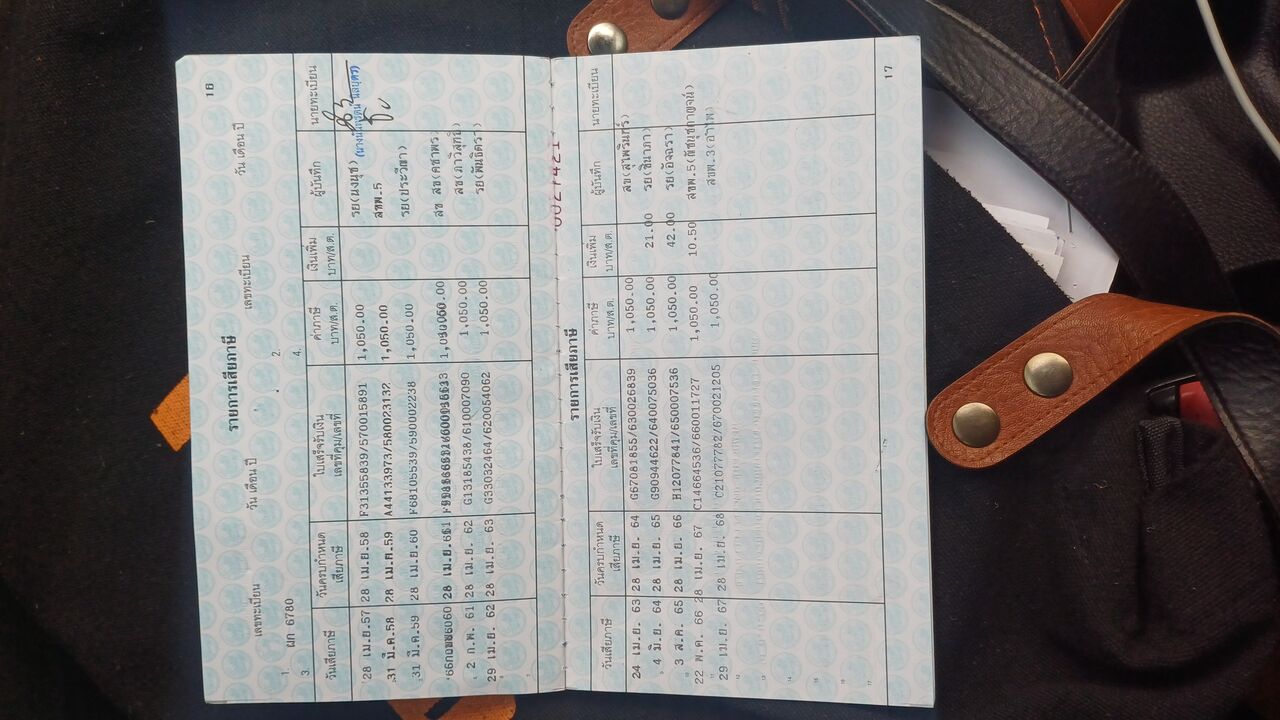 16
รายการเสียภาษี
เลขทะเบียน วัน เดือน ปี เลขทะเบียน วัน เดือน ปี
1. ผก 6780 2.
3. 4.
วันเสียภาษี วันครบกำหนดเสียภาษี ใบเสร็จรับเงิน เลขที่คุม/เลขที่ ค่าภาษี บาท/ส.ต. เงินเพิ่ม บาท/ส.ต. ผู้บันทึก นายทะเบียน
28 เม.ย.57 28 เม.ย.58 F31355839/570015891 1,050.00 รย(นงนุช)
31 มี.ค.58 28 เม.ค.59 A44133973/580023132 1,050.00 สขพ.5
31 มี.ค.59 28 เม.ย.60 F68105539/590002238 1,050.00 รย(ประวีณา)
28 เม.ย. สข
2 ก.พ. 61 28 เม.ย. 62 G13185438/610007090 1,050.00
29 เม.ย. 62 28 เม.ย. 63 G33032464/620054062 1,050.00 รย(พันธิตรา)
17
รายการเสียภาษี
วันเสียภาษี วันครบกำหนดเสียภาษี ใบเสร็จรับเงิน เลขที่คุม/เลขที่ ค่าภาษี บาท/ส.ต. เงินเพิ่ม บาท/ส.ต. ผู้บันทึก นายทะเบียน
24 เม.ย. 63 28 เม.ย. 64 G67081855/630026839 1,050.00 สข(สุพรินทร์)
4 มิ.ย. 64 28 เม.ย. 65 G90944622/640075036 1,050.00 21.00 รย(ชินาภา)
3 ส.ค. 65 28 เม.ย. 66 H12077841/650007536 1,050.00 42.00 รย(อัจฉรา)
22 พ.ค. 66 28 เม.ย. 67 C14664536/660011727 1,050.00 10.50 สขพ.5
29 เม.ย. 67 28 เม.ย. 68 C21077782/670021205 1,050.00 สขพ.3(อำไพ)